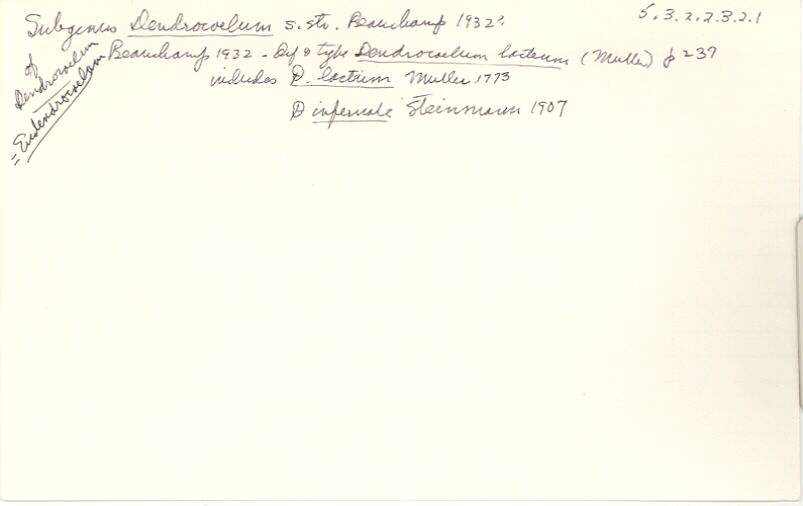 Subgenus Dendrocoelum s. str. Beauchamp 1932:
5.3.2.2.3.2.1
of
Dendrocoelum
= Eudendrocoelum
Beauchamp 1932 - Def & type Dendrocoelum lacteum (Muller) p 237
includes D. lacteum Muller 1773
D infernale Steinmann 1907